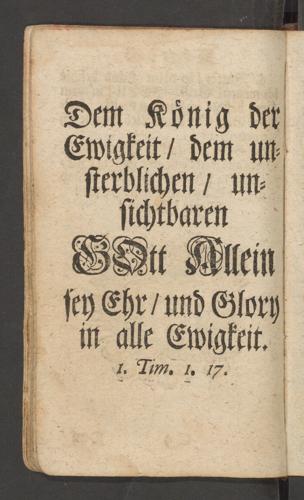 Dem König der
Ewigkeit / dem un⸗
sterblichen / un⸗
sichtbaren
GOtt Allein
sey Ehr / und Glory
in alle Ewigkeit.
1. Tim. 1. 17.